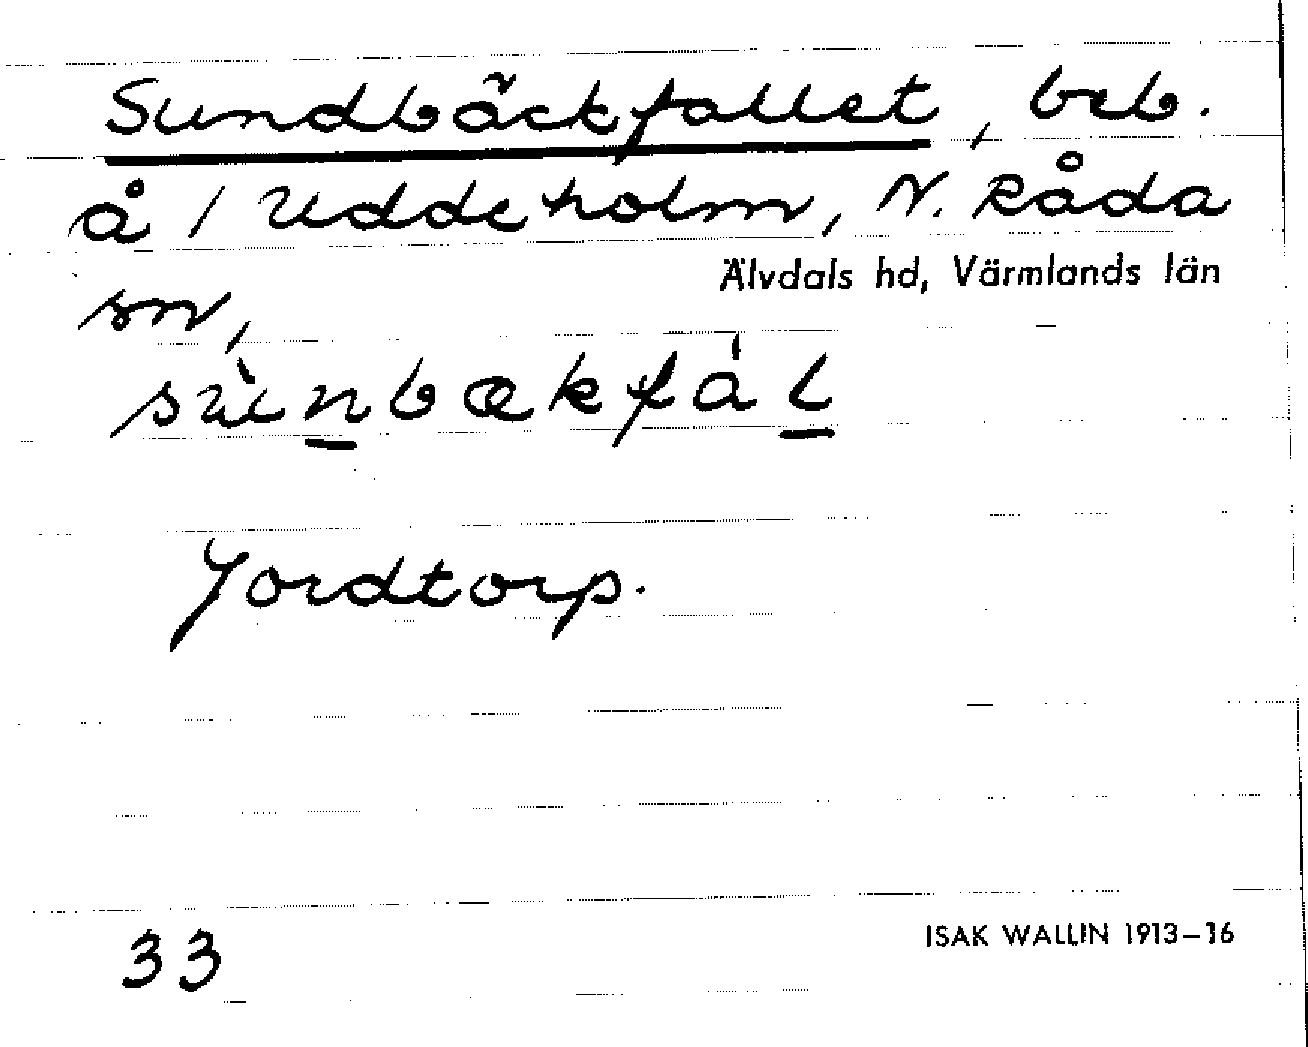 Sundbäckfallet, beb.
å 1 Uddeholm, N. Råda
Älvdals hd, Värmlands län
sn,
sùnbækfál
Jordtorp.
33
ISAK WALLIN 1913–16